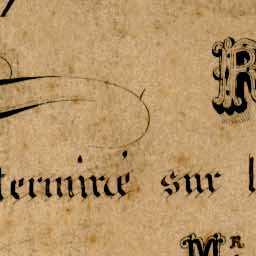 R
terminé sur l
Mr